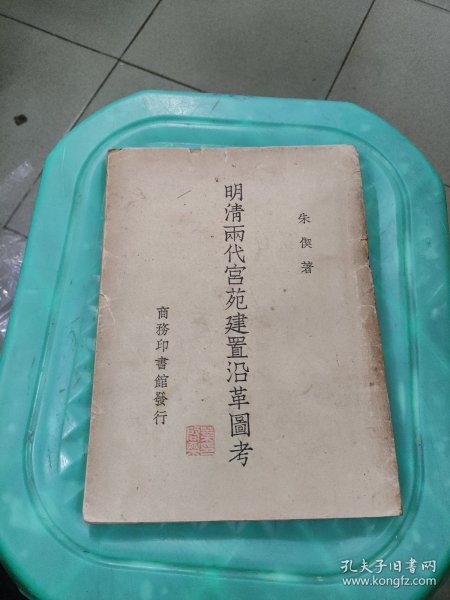 朱偰著
明清兩代宮苑建置沿革圖考
商務印書館發行
孔夫子旧书网
www.kongfz.com